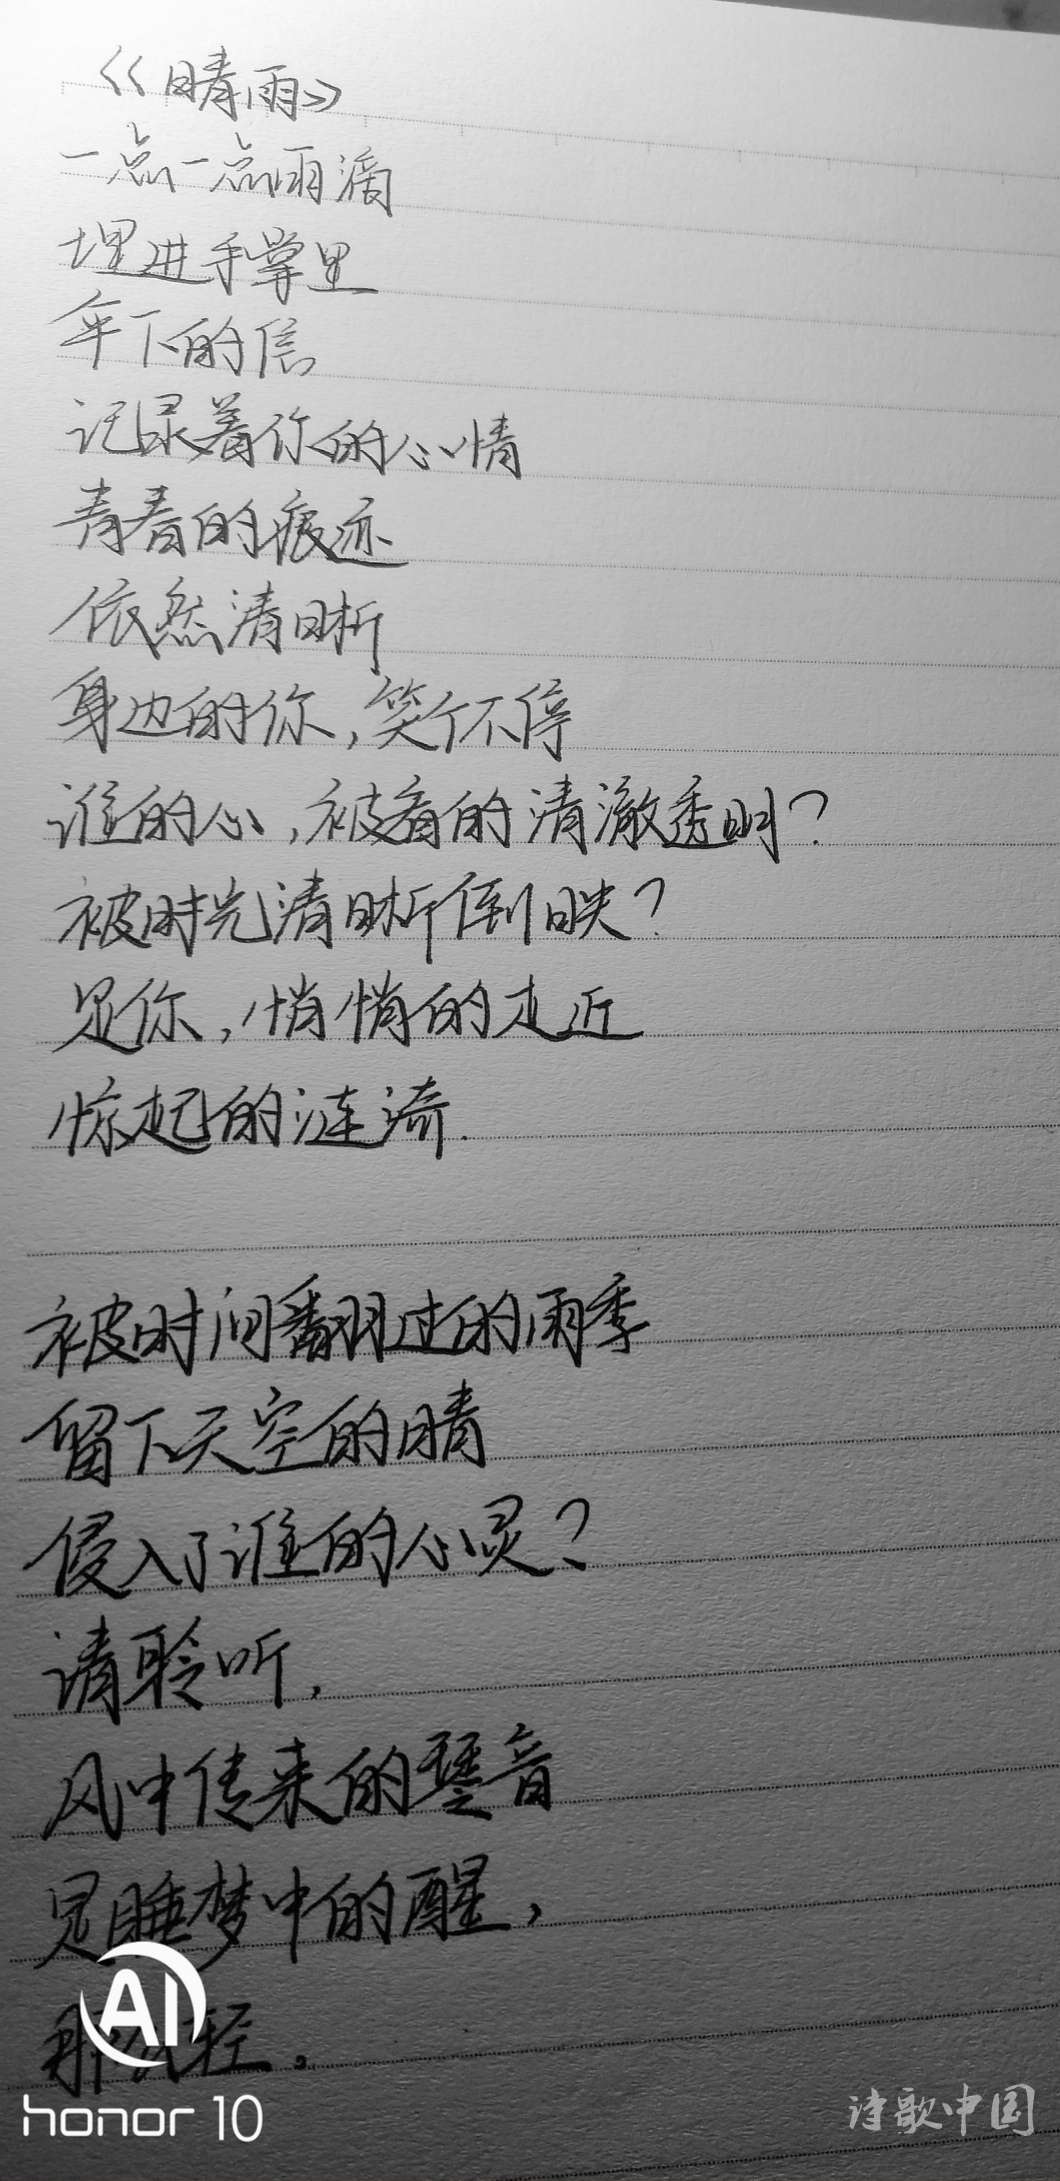 《晴雨》
一点一点雨滴
埋进手掌里
年下的信
记录着你的心情
青春的痕迹
依然清晰
身边的你，笑个不停
谁的心，被看的清澈透明？
被时光清晰倒映？
是你，悄悄的走近
惊起的涟漪.
被时间翻过的雨季
留下天空的晴
侵入了谁的心灵？
请聆听，
风中传来的琴音
是睡梦中的醒，
那么轻。
AI
honor 10
诗歌中国